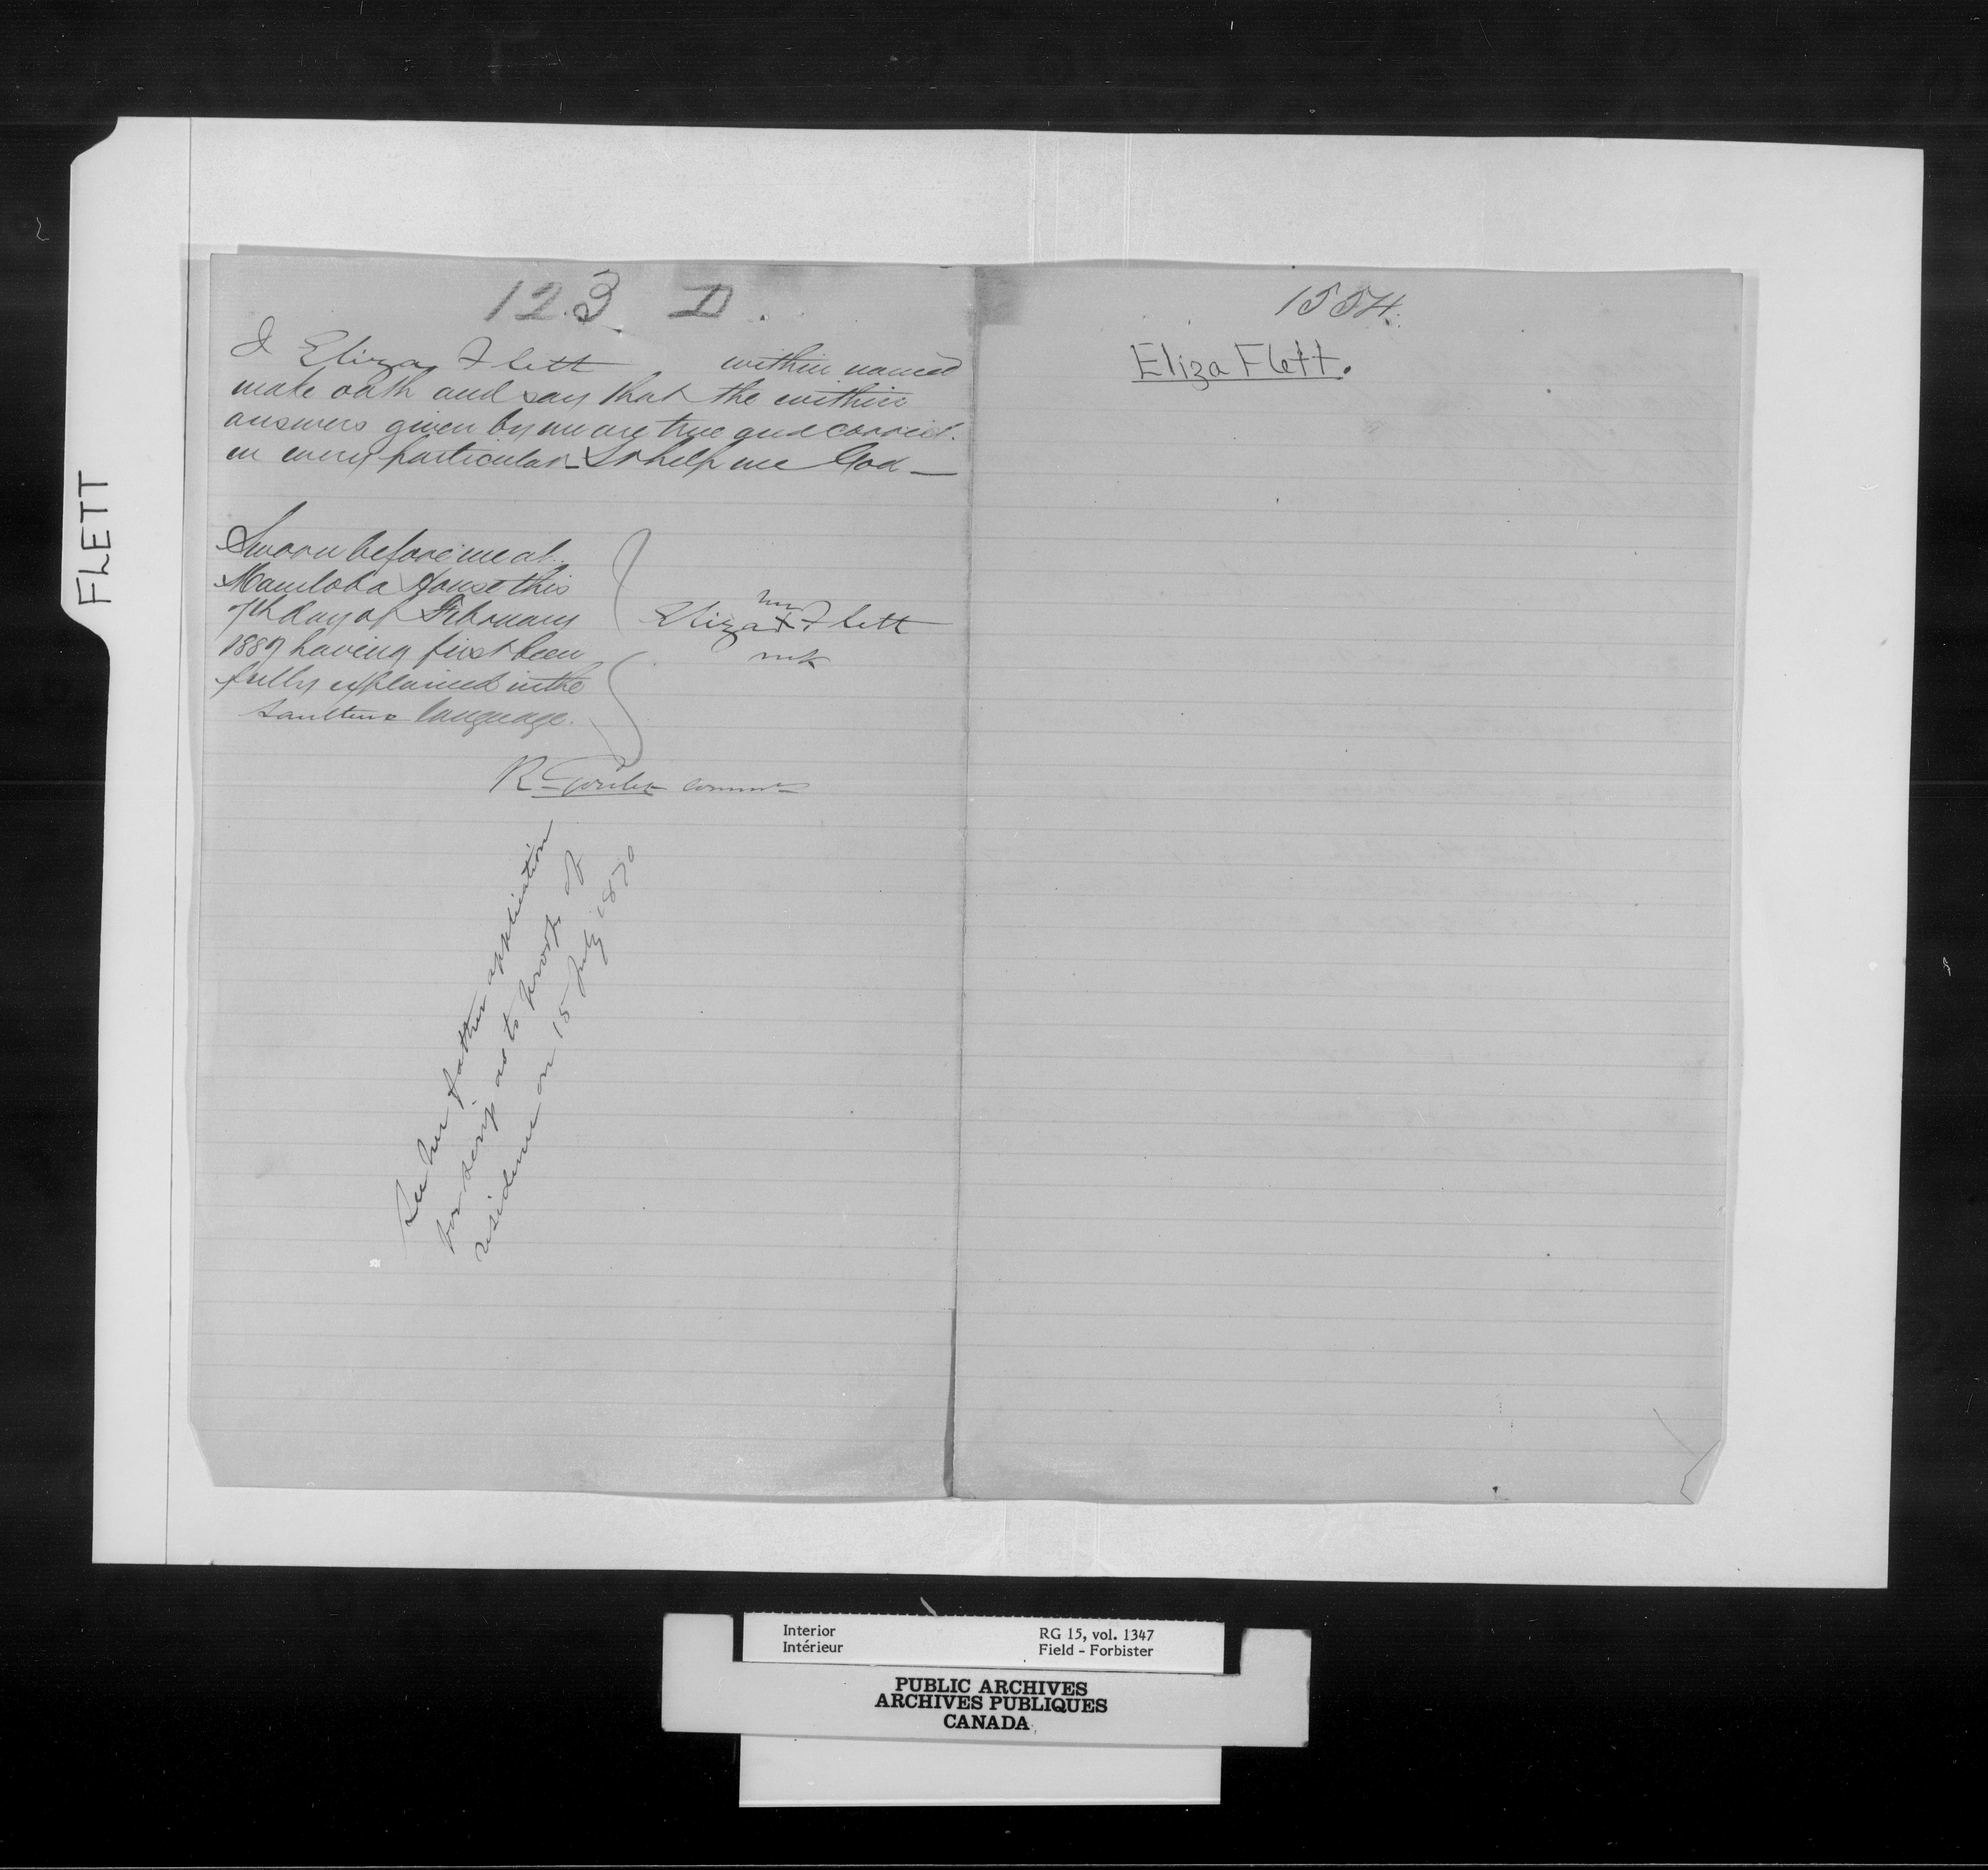 FLETT
123 D.
I Eliza Flett within named
make oath and say that the within
answers given by me are true and correct
in every particular So help me God —
Sworn before me at
Manitoba House this
7th day of February
1887 having first been
fully explained in the
Saulteux language.
her
Eliza X Flett
mk
R. Goulet
See her father application
for scrip as to proof of
residence on 15 July 1870
1554.
Eliza Flett.
Interior
Intérieur
RG 15, vol. 1347
Field - Forbister
PUBLIC ARCHIVES
ARCHIVES PUBLIQUES
CANADA